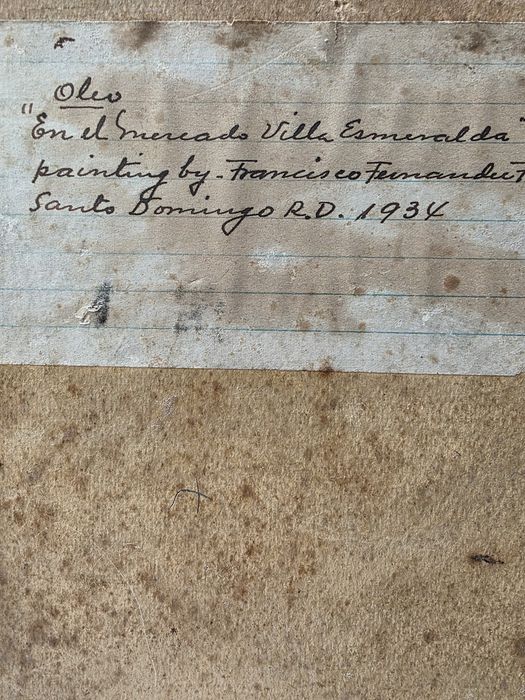 Oleo
"En el mercado Villa Esmeralda"
painting by. Francisco Fernandez F
Santo Domingo R.D. 1934